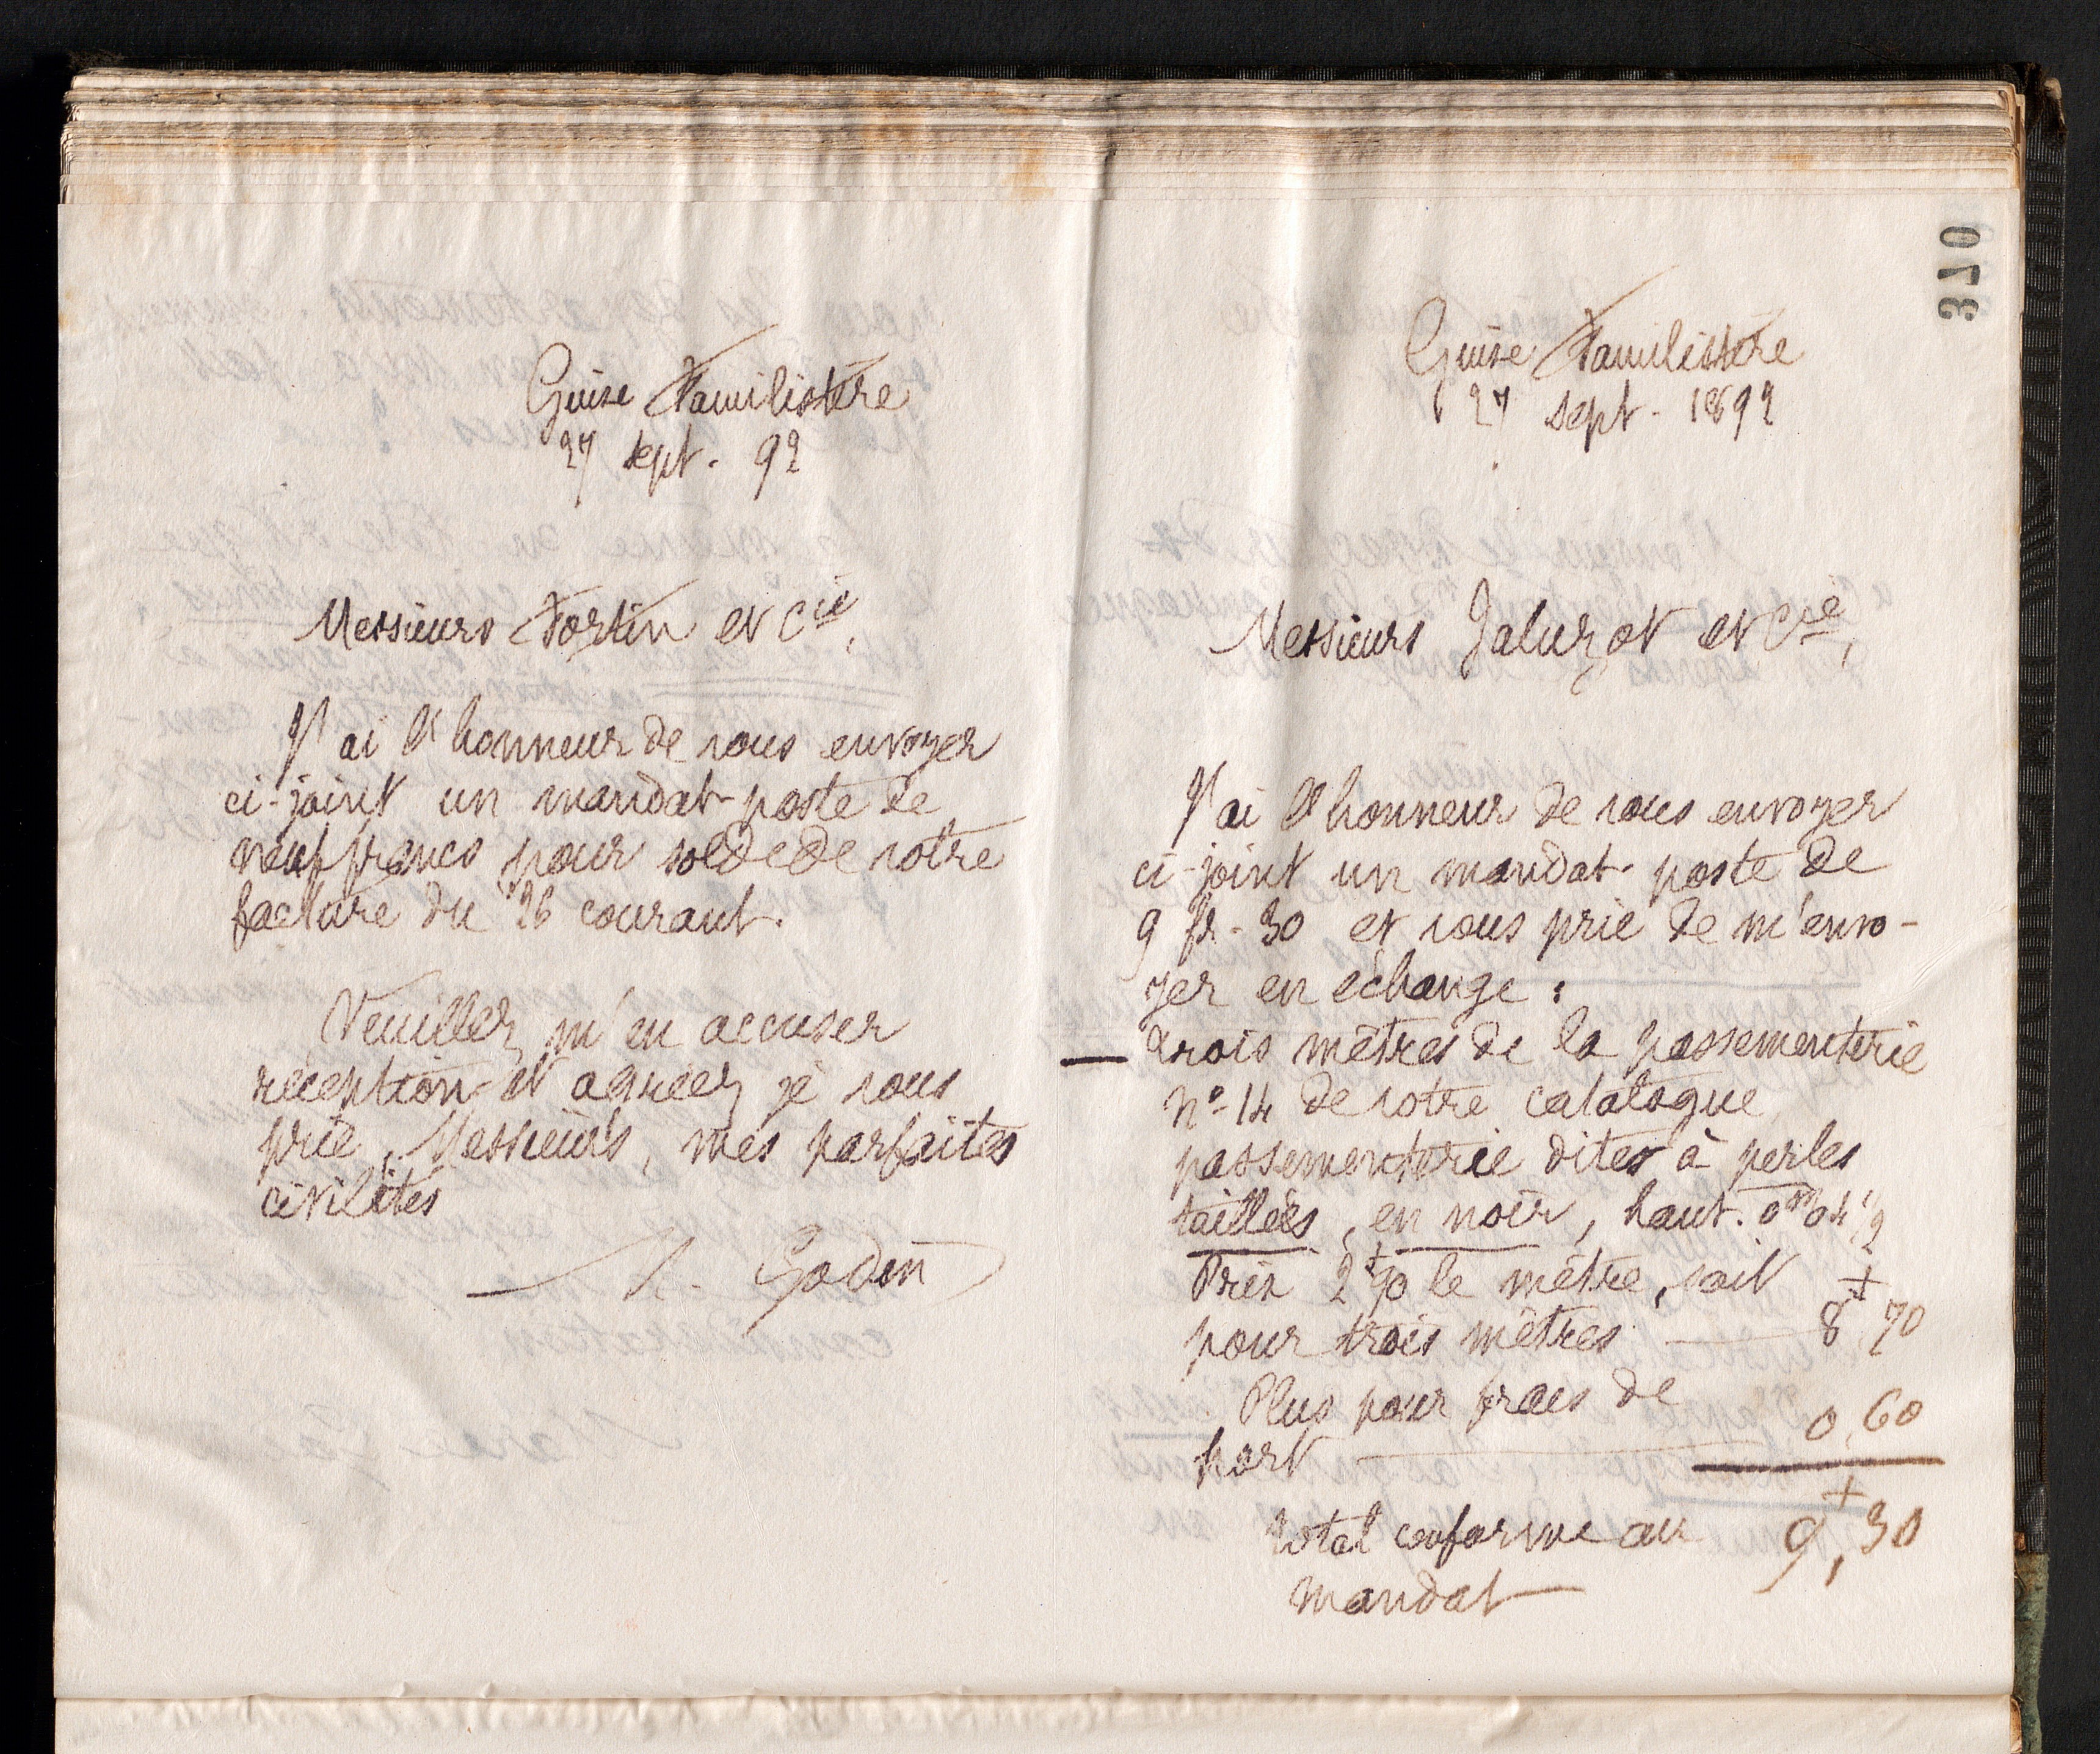 Guise Familistère
27 sept. 92
Messieurs Fortin et Cie,
J'ai l'honneur de vous envoyer
ci-joint un mandat-poste de
neuf francs pour solde de votre
facture du 26 courant.
Veuillez m'en accuser
réception et agréer, je vous
prie, Messieurs, mes parfaites
civilités
Godin
370
Guise Familistère
27 sept. 1892
Messieurs Jaluzot et Cie,
J'ai l'honneur de vous envoyer
ci-joint un mandat-poste de
9 fr. 30 et vous prie de m'envo-
yer en échange :
— trois mètres de la passementerie
n° 14 de votre catalogue
passementerie dites à perles
taillées, en noir, haut. 0m04 1/2
Prix 2f90 le mètre, soit
pour trois mètres — 8f70
Plus pour frais de
port — 0,60
total conforme au 9f,30
mandat